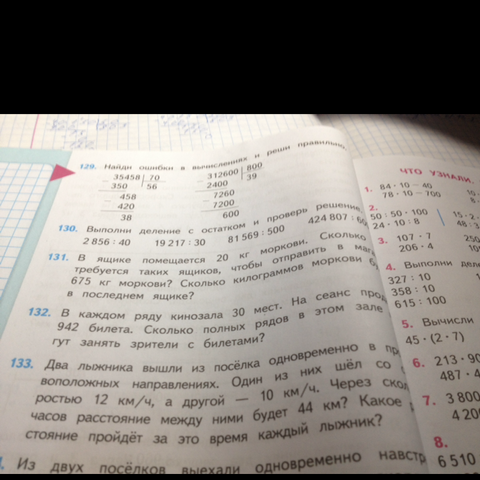 129. Найди ошибки в вычислениях и реши правильно.
35458 | 70
350 | 56
458
420
38
312600 | 800
2400 | 39
7260
7200
600
130. Выполни деление с остатком и проверь решение.
2 856 : 40 19 217 : 30 81 569 : 500 424 807 : 6
131. В ящике помещается 20 кг моркови. Сколько
требуется таких ящиков, чтобы отправить в
675 кг моркови? Сколько килограммов моркови
в последнем ящике?
132. В каждом ряду кинозала 30 мест. На сеанс
942 билета. Сколько полных рядов в этом зале
гут занять зрители с билетами?
133. Два лыжника вышли из посёлка одновременно в
воположных направлениях. Один из них шёл со
ростью 12 км/ч, а другой — 10 км/ч. Через
часов расстояние между ними будет 44 км? Какое
стояние пройдёт за это время каждый лыжник?
Из двух посёлков выехали одновременно навстр
ЧТО УЗНАЛИ.
1. 84 · 10 − 40
706 · 10
2.
50 : 50 · 100 15 · 2
24 · 10 : 8 48 : 3
3. 107 · 7 250
206 · 4
4. Выполни
327 : 10
358 : 10
615 : 100
5. Вычисли
45 · (2 · 7)
6. 213 · 90
487 · 4
7. 3 800
4 20
8.
6 510